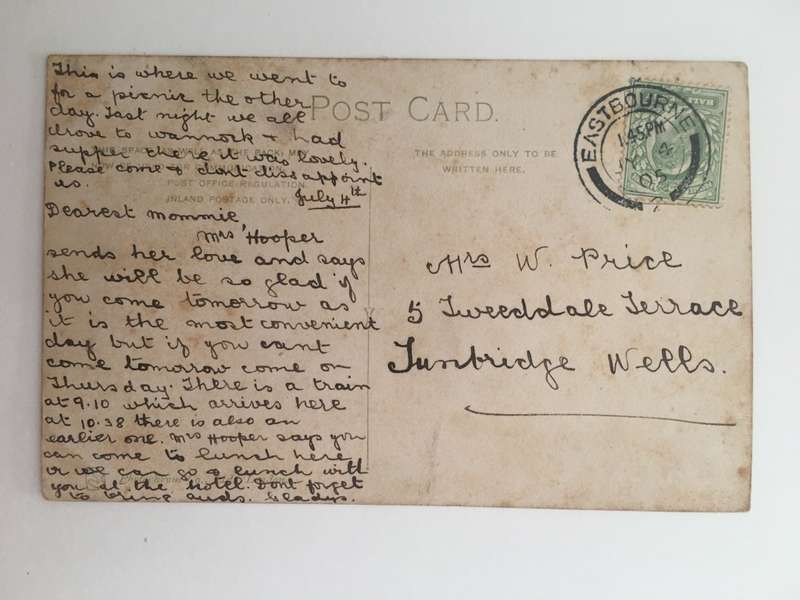 This is where we went to
for a picnic the other
day. Last night we all
drove to Wannock & had
supper there it was lovely.
Please come & dont dissappoint
us.
July 4th
Dearest Mommie
Mrs Hooper
sends her love and says
she will be so glad if
you come tomorrow as
it is the most convenient
day but if you cant
come tomorrow come on
Thursday. There is a train
at 9.10 which arrives here
at 10.38 there is also an
earlier one. Mrs Hooper says you
can come to lunch here
or we can go & lunch with
you at the hotel. Dont forget
to bring Gladys.
POST CARD.
POST OFFICE REGULATION.
INLAND POSTAGE ONLY.
THE ADDRESS ONLY TO BE
WRITTEN HERE.
EASTBOURNE
1.45PM
JY 4
05
HALF
Mrs W. Price
5 Tweeddale Terrace
Tunbridge Wells.